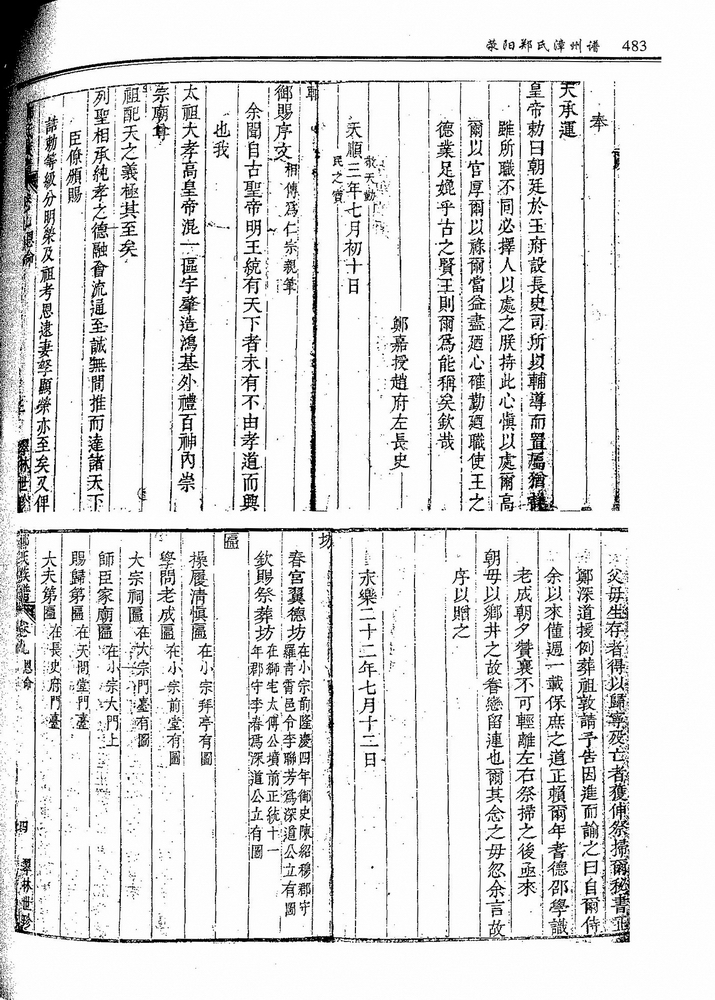 荥阳郑氏漳州谱 483
奉
天承運
皇帝勅曰朝廷於王府設長史司所以輔導而置屬猶
雖所職不同必擇人以處之朕持此心慎以處爾高
爾以官厚爾以祿爾當益盡廼心確勤廼職使王之
德業足媲乎古之賢王則爾爲能稱矣欽哉
鄭嘉授趙府左長史
敬天勤
民之寶
天順三年七月初十日
御賜序文 相傳爲仁宗親筆
余聞自古聖帝明王統有天下者未有不由孝道而興
也我
太祖大孝高皇帝混一區宇肇造鴻基外禮百神內崇
宗廟
祖配天之義極其至矣
列聖相承純孝之德融會流通至誠無間推而達諸天下
臣僚頒賜
誥勅等級分明榮及祖考恩遠妻孥顯榮亦至矣又俾
翠林世珍
父毋生存者得以歸寧歿亡者獲伸祭掃爾秘書正
鄭深道援例葬祖敦請予告因進而諭之曰自爾侍
余以來僅週一載保庶之道正賴爾年耆德邵學識
老成朝夕贊襄不可輕離左右祭掃之後亟來
朝毋以鄉井之故眷戀留連也爾其念之毋忽余言故
序以贈之
永樂二十二年七月十二日
坊
春宮翼德坊 在小宗前隆慶四年御史陳紹穆郡守
羅青霄邑令李聯芳爲深道公立有圖
欽賜祭葬坊 在獅宅太傅公墳前正統十一
年郡守李春爲深道公立有圖
匾
操履清慎匾 在小宗拜亭有圖
學問老成匾 在小宗前堂有圖
大宗祠匾 在大宗門臺有圖
師臣家廟匾 在小宗大門上
賜歸第匾 在天閣堂門臺
大夫第匾 在長史府門臺
鄭氏族譜 卷九 恩命 四 翠林世珍